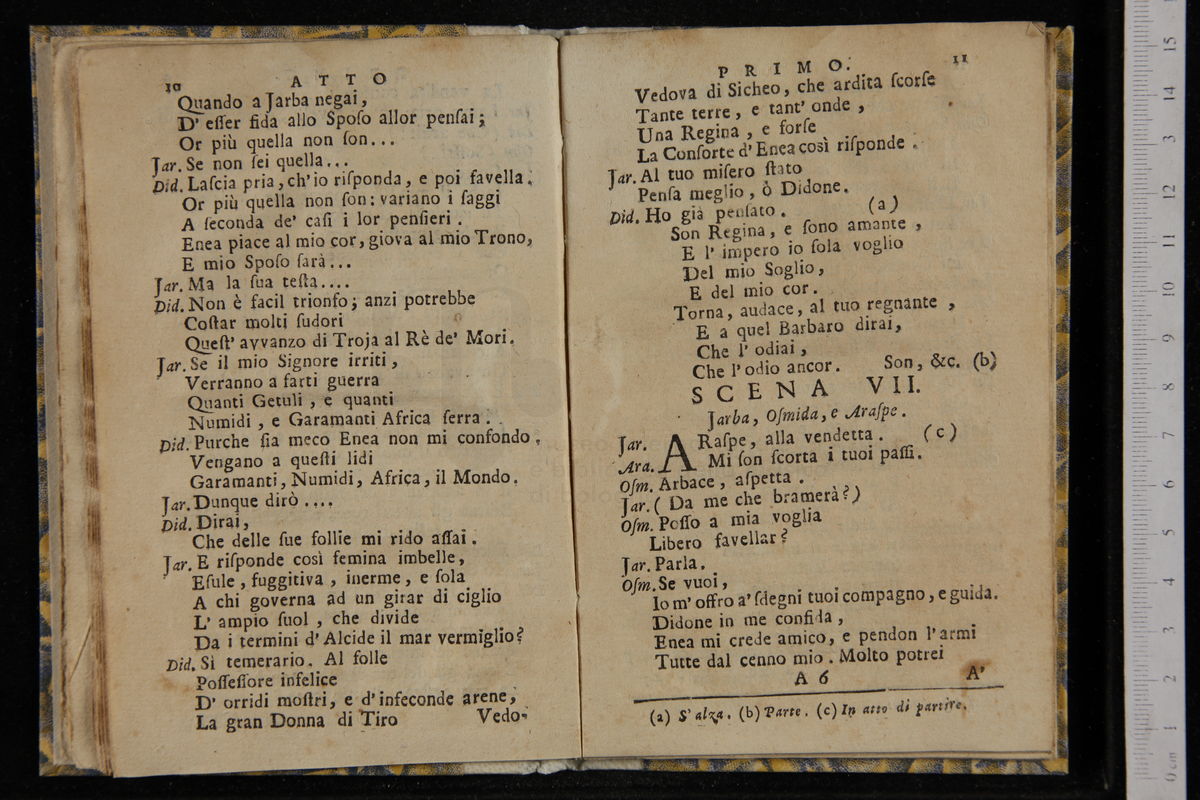 10 ATTO
Quando a Jarba negai,
D' eſſer fida allo Spoſo allor penſai;
Or più quella non ſon...
Jar. Se non ſei quella...
Did. Laſcia pria, ch' io riſponda, e poi favella.
Or più quella non ſon: variano i ſaggi
A ſeconda de' caſi i lor penſieri.
Enea piace al mio cor, giova al mio Trono,
E mio Spoſo ſarà...
Jar. Ma la ſua teſta....
Did. Non è facil trionfo; anzi potrebbe
Coſtar molti ſudori
Queſt' avvanzo di Troja al Rè de' Mori.
Jar. Se il mio Signore irriti,
Verranno a farti guerra
Quanti Getuli, e quanti
Numidi, e Garamanti Africa ſerra.
Did. Purche ſia meco Enea non mi confondo.
Vengano a queſti lidi
Garamanti, Numidi, Africa, il Mondo.
Jar. Dunque dirò ....
Did. Dirai,
Che delle ſue follie mi rido aſſai.
Jar. E riſponde così femina imbelle,
Eſule, fuggitiva, inerme, e ſola
A chi governa ad un girar di ciglio
L' ampio ſuol, che divide
Da i termini d' Alcide il mar vermiglio?
Did. Sì temerario. Al folle
Poſſeſſore infelice
D' orridi moſtri, e d' infeconde arene,
La gran Donna di Tiro Vedo-
PRIMO. 11
Vedova di Sicheo, che ardita ſcorſe
Tante terre, e tant' onde,
Una Regina, e forſe
La Conſorte d' Enea così riſponde.
Jar. Al tuo miſero ſtato
Penſa meglio, ò Didone.
Did. Ho già penſato. (a)
Son Regina, e ſono amante,
E l' impero io ſola voglio
Del mio Soglio,
E del mio cor.
Torna, audace, al tuo regnante,
E a quel Barbaro dirai,
Che l' odiai,
Che l' odio ancor. Son, &c. (b)
SCENA VII.
Jarba, Oſmida, e Araſpe.
Jar. ARaſpe, alla vendetta. (c)
Ara. Mi ſon ſcorta i tuoi paſſi.
Oſm. Arbace, aſpetta.
Jar. (Da me che bramerà?)
Oſm. Poſſo a mia voglia
Libero favellar?
Jar. Parla.
Oſm. Se vuoi,
Io m' offro a' ſdegni tuoi compagno, e guida.
Didone in me confida,
Enea mi crede amico, e pendon l' armi
Tutte dal cenno mio. Molto potrei
A 6 A'
(a) S' alza. (b) Parte. (c) In atto di partire.